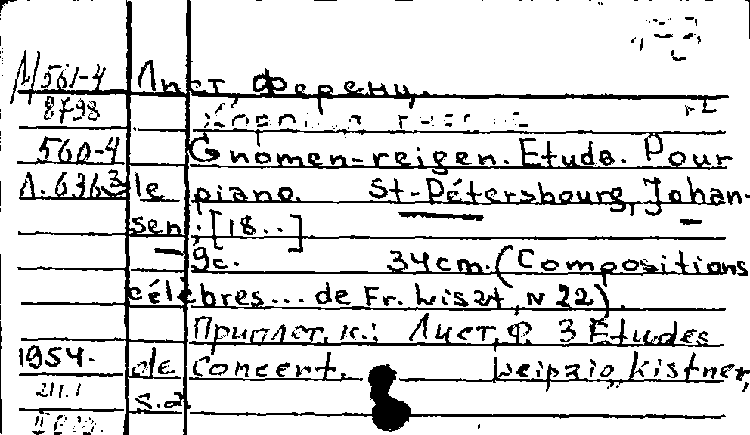 М 561-4 Лист, Ференц.
8798
560-4 Gnomen-reigen. Etude. Pour
Л. 6363 le piano. St-Pétersbourg, Johan-
sen, [18..]
9с. 34cm. (Compositions
célèbres... de Fr. Liszt, N 22).
Приплет. к.: Лист, Ф. 3 Etudes
1954. de Concert. Leipzig, Kistner,
s.a.